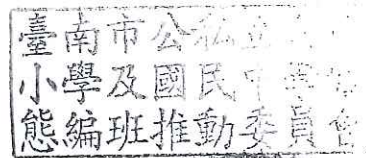 臺南市公私立
小學及國民中學
態編班推動委員會